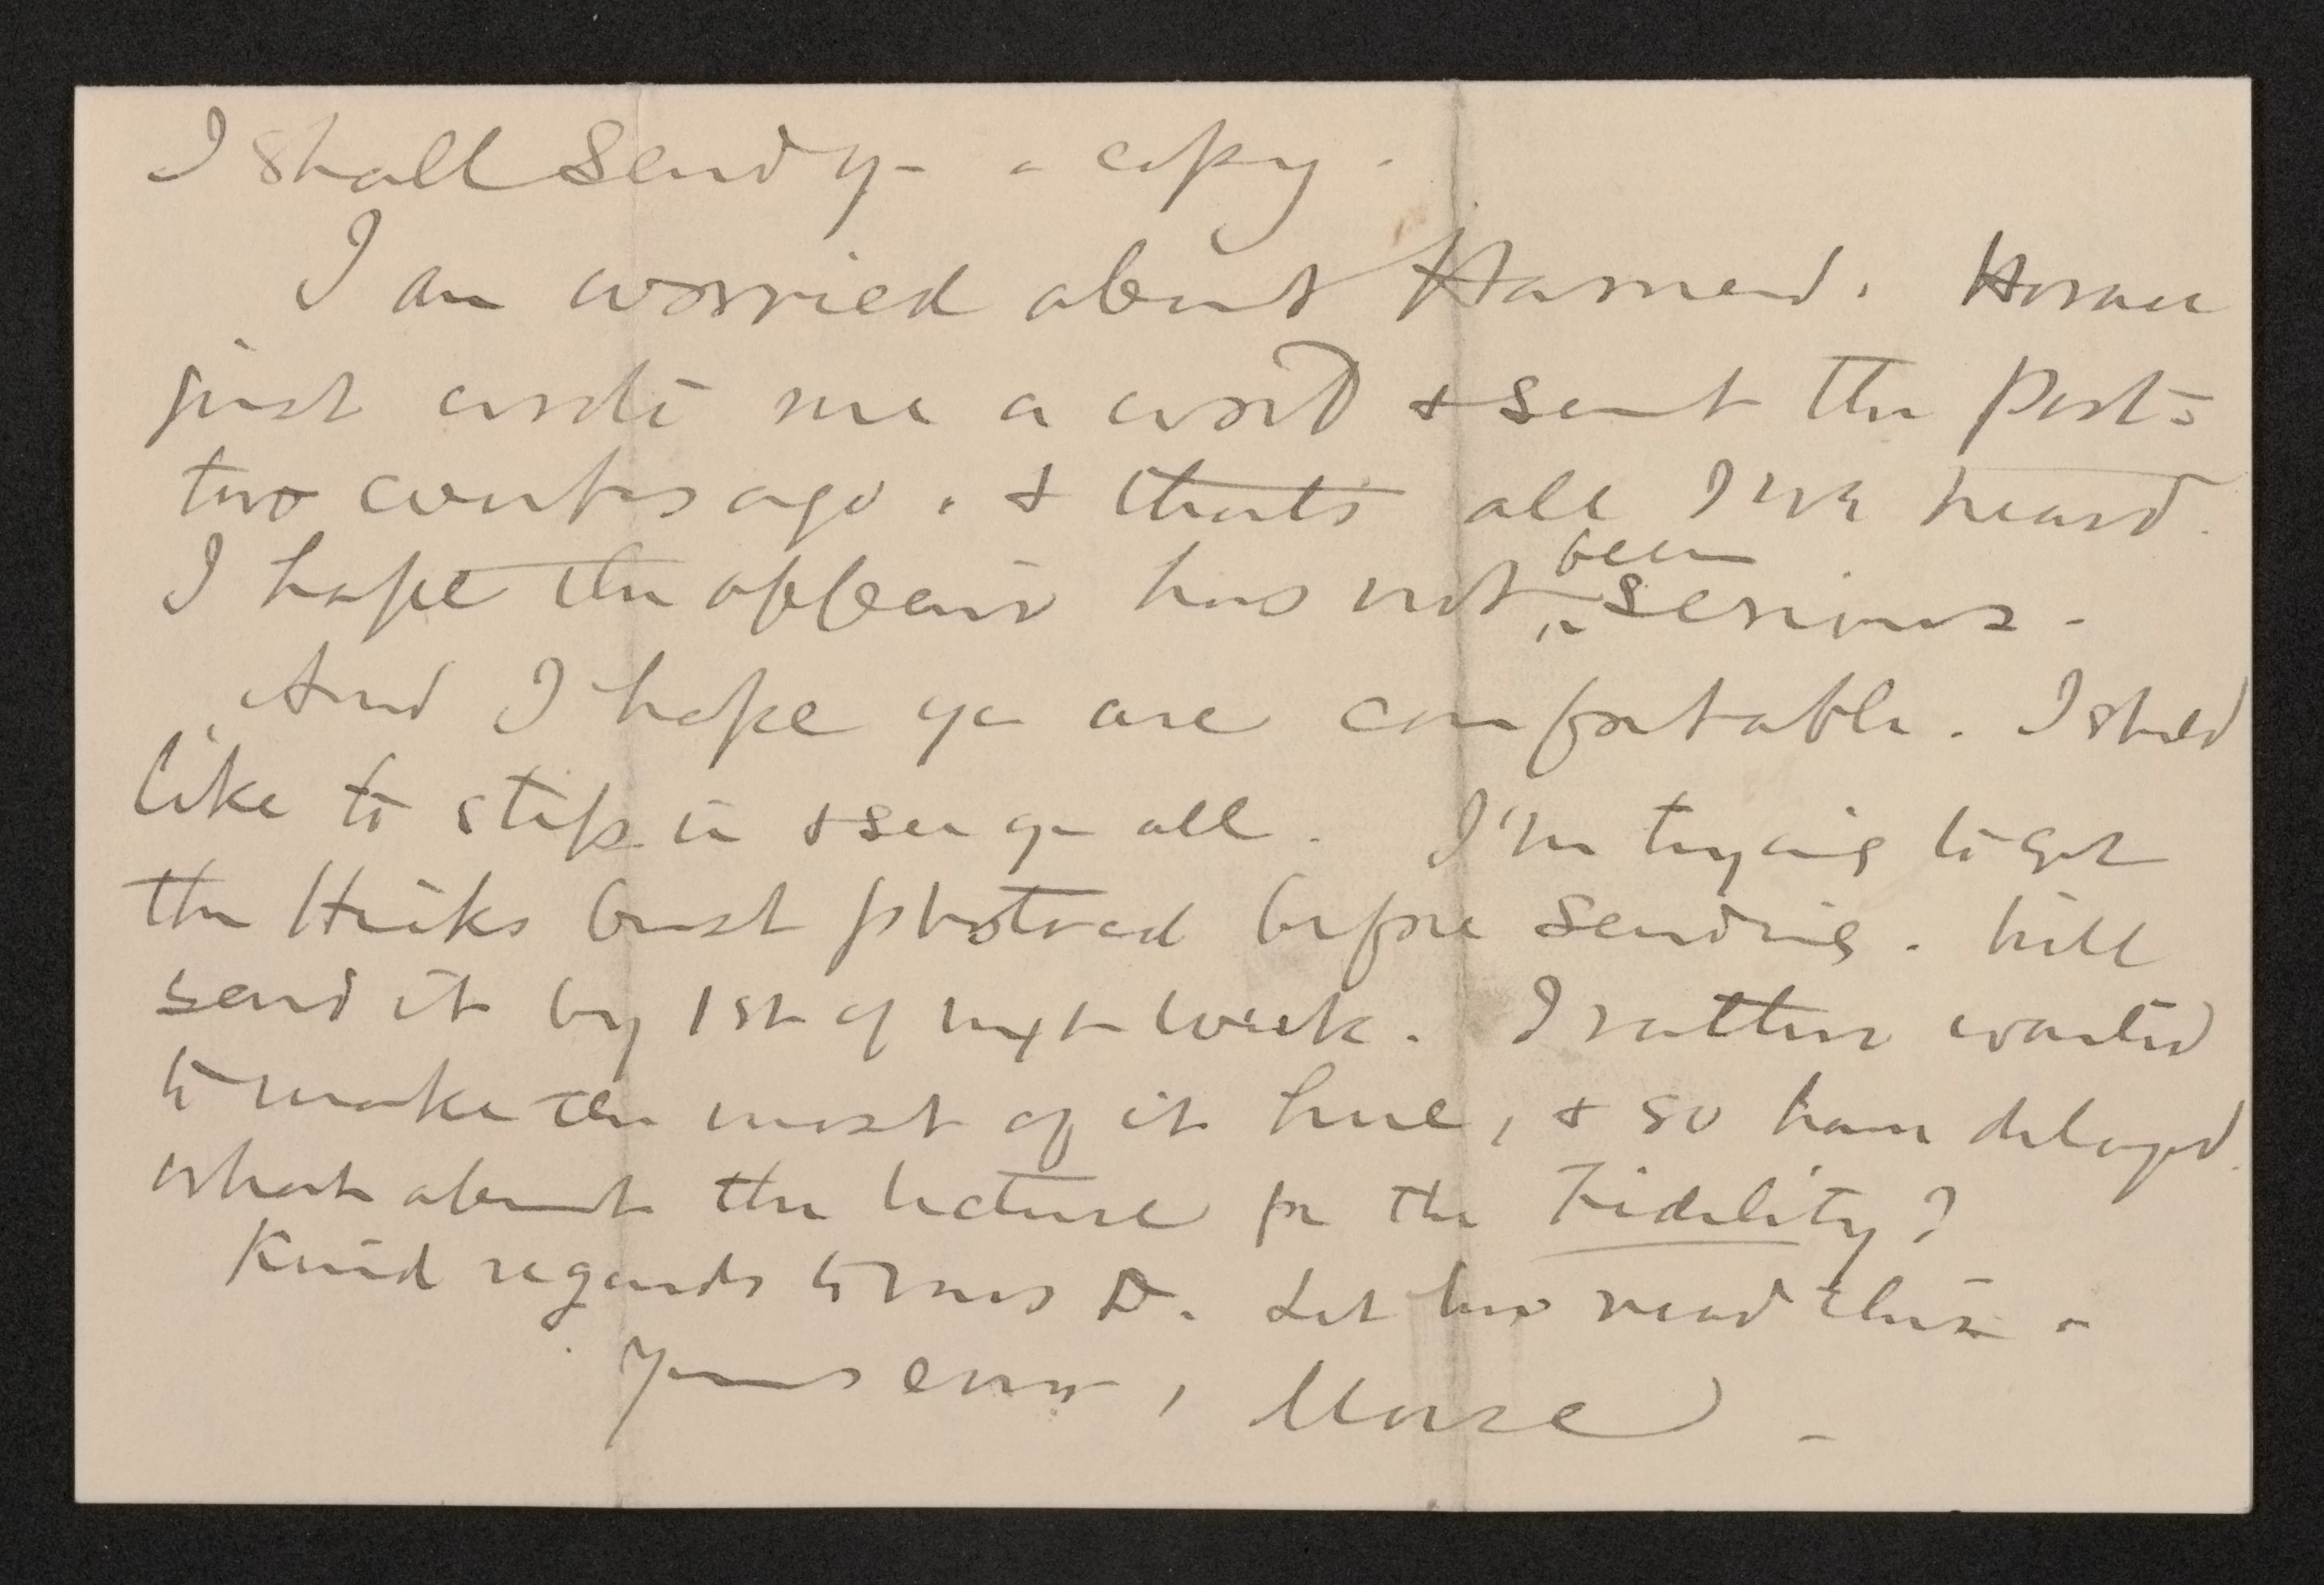 I shall send y- a copy.
I am worried about Harned. Horace
just wrote me a word & sent the Post-
two weeks ago. & that's all I've heard.
I hope the affair has not been serious.
And I hope yo are comfortable. I shld
like to step in & see yo all. I'm trying to get
the Hicks bust photoed before sending. Will
send it by 1st of next week. I rather wanted
to make the most of it here, & so have delayed.
What about the lecture for the Fidelity?
Kind regards to Mrs D. Let her read this -
Yours ever, Morse -